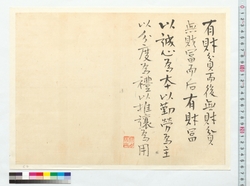 有財貧而後無財貧
無財富而后有財富
以誠心為本以勤勞為主
以分度為禮以推讓為用